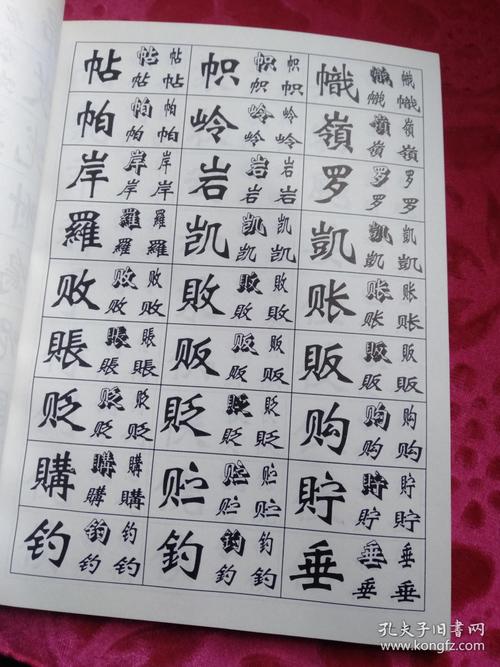 帖 帖 帖 帖 帖 帜 帜 帜 帜 帜 幟 幟 幟 幟 幟
帕 帕 帕 帕 帕 岭 岭 岭 岭 岭 嶺 嶺 嶺 嶺 嶺
岸 岸 岸 岸 岸 岩 岩 岩 岩 岩 罗 罗 罗 罗 罗
羅 羅 羅 羅 羅 凯 凯 凯 凯 凯 凱 凱 凱 凱 凱
败 败 败 败 败 敗 敗 敗 敗 敗 账 账 账 账 账
賬 賬 賬 賬 賬 贩 贩 贩 贩 贩 販 販 販 販 販
贬 贬 贬 贬 贬 貶 貶 貶 貶 貶 购 购 购 购 购
購 購 購 購 購 贮 贮 贮 贮 贮 貯 貯 貯 貯 貯
钓 钓 钓 钓 钓 釣 釣 釣 釣 釣 垂 垂 垂 垂 垂
孔夫子旧书网
www.kongfz.com